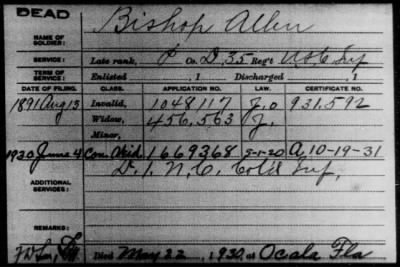 DEAD
NAME OF SOLDIER: Bishop Allen
SERVICE: Late rank, P Co. D, 35 Reg't U.S.C. Inf
TERM OF SERVICE: Enlisted , 1 Discharged , 1
DATE OF FILING. CLASS. APPLICATION NO. LAW. CERTIFICATE NO.
1891 Aug 13 Invalid, 1048117 J.O 931.592
Widow, 456,563 J.
Minor,
1930 June 4 Con Wid. 1669368 5-1-20 A, 10-19-31
ADDITIONAL SERVICES: D. 1. N.C. Col'd Inf.
REMARKS:
Died May 22, 1930, at Ocala Fla